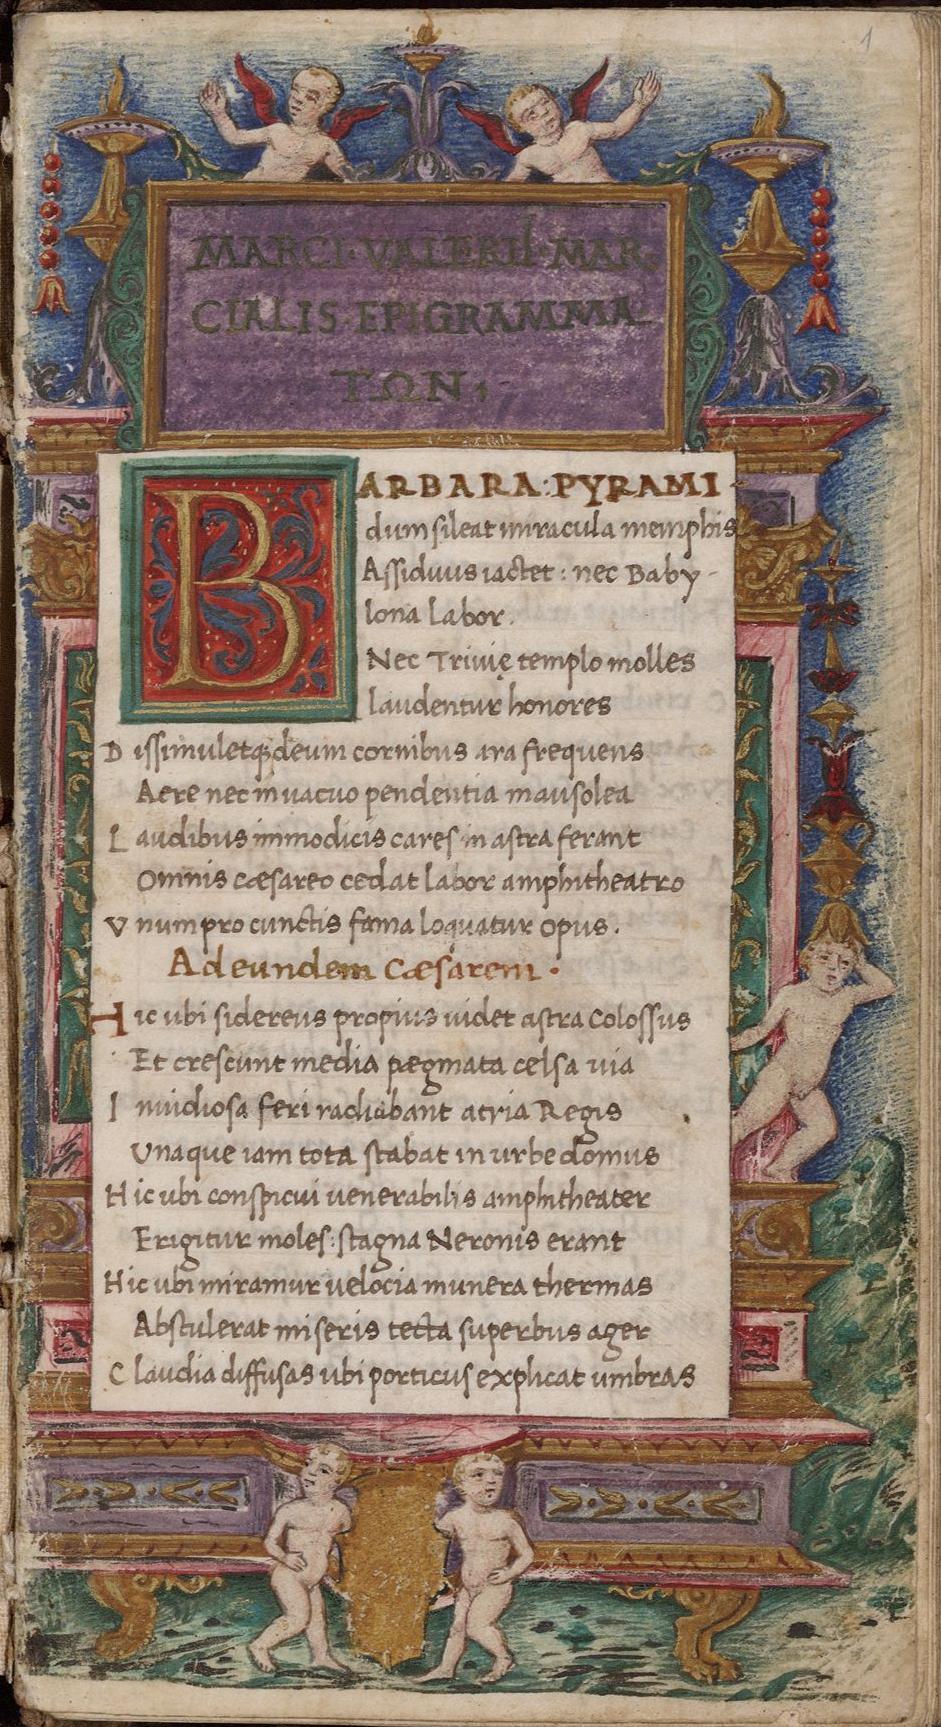 1
MARCI·VALERII·MAR
CIALIS·EPIGRAMMA
TΩN;
BARBARA:PYRAMI-
dum sileat miracula memphis
Assiduus iactet: nec Baby-
lona labor.
Nec Triuię templo molles
laudentur honores
Dissimuletqꝫ deum cornibus ara frequens
Aere nec in uacuo pendentia mausolea
Laudibus immodicis cares in astra ferant
Omnis cæsareo cedat labor amphitheatro
Vnum pro cunctis fama loquatur opus.
Ad eundem Cæsarem.
Hic ubi sidereus propius uidet astra colossus
Et crescunt media pegmata celsa uia
Inuidiosa feri radiabant atria Regis
Vnaque iam tota stabat in urbe domus
Hic ubi conspicui uenerabilis amphitheater
Erigitur moles: stagna Neronis erant
Hic ubi miramur uelocia munera thermas
Abstulerat miseris tecta superbus ager
Claudia diffusas ubi porticus explicat umbras